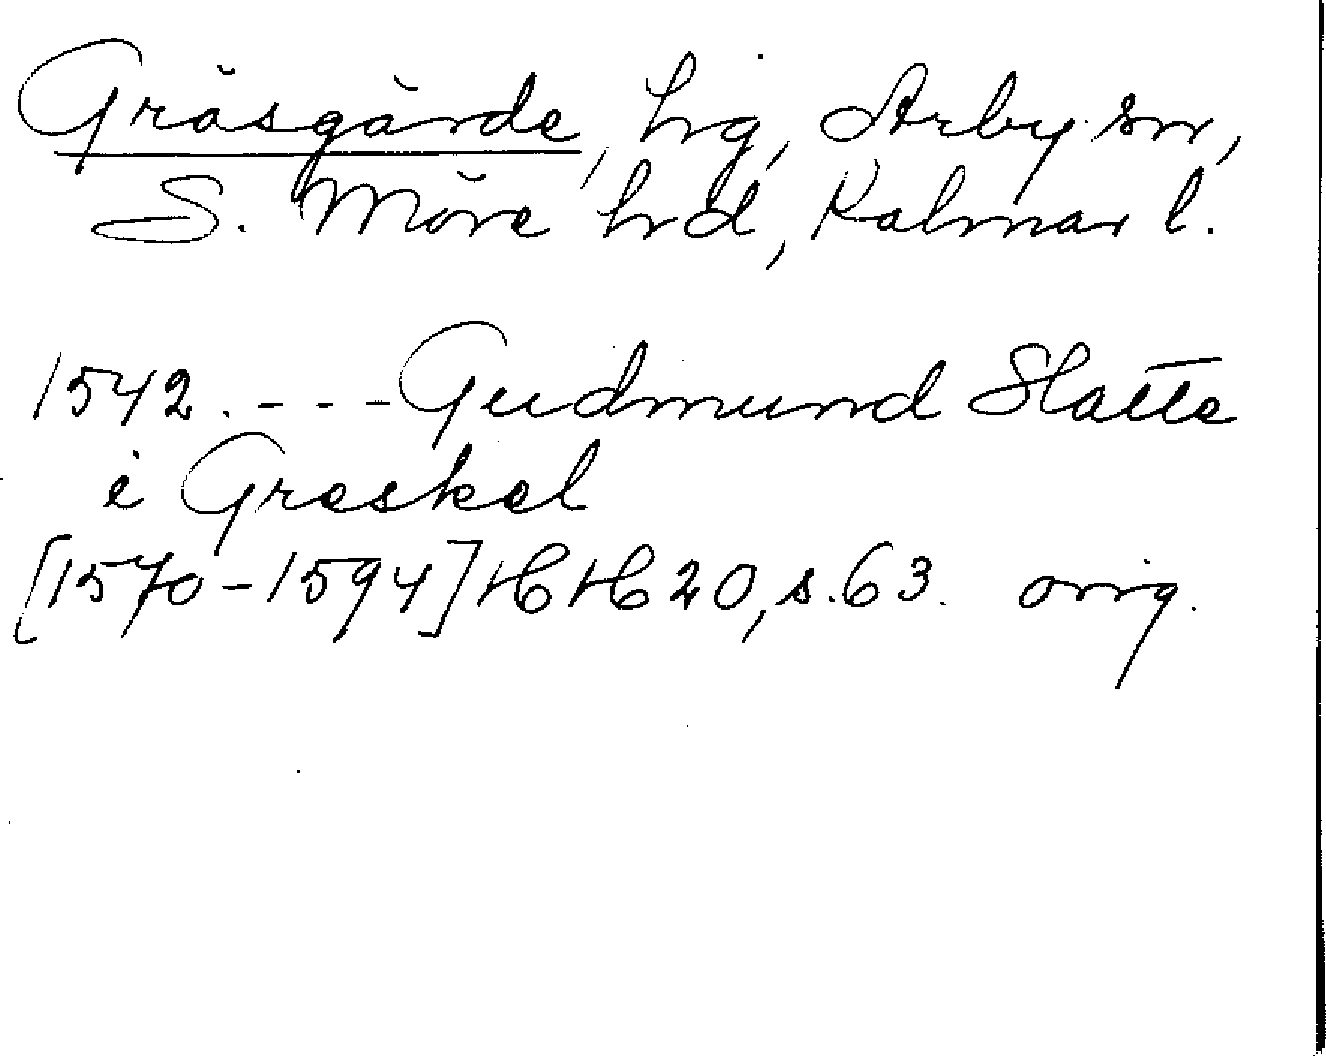 Gräsgärde, hg, Arby sn,
S. Möre hd, Kalmar l.
1542. - - - Gudmund Slatte
i Greskel
[1570-1594] HH20, s. 63. orig.